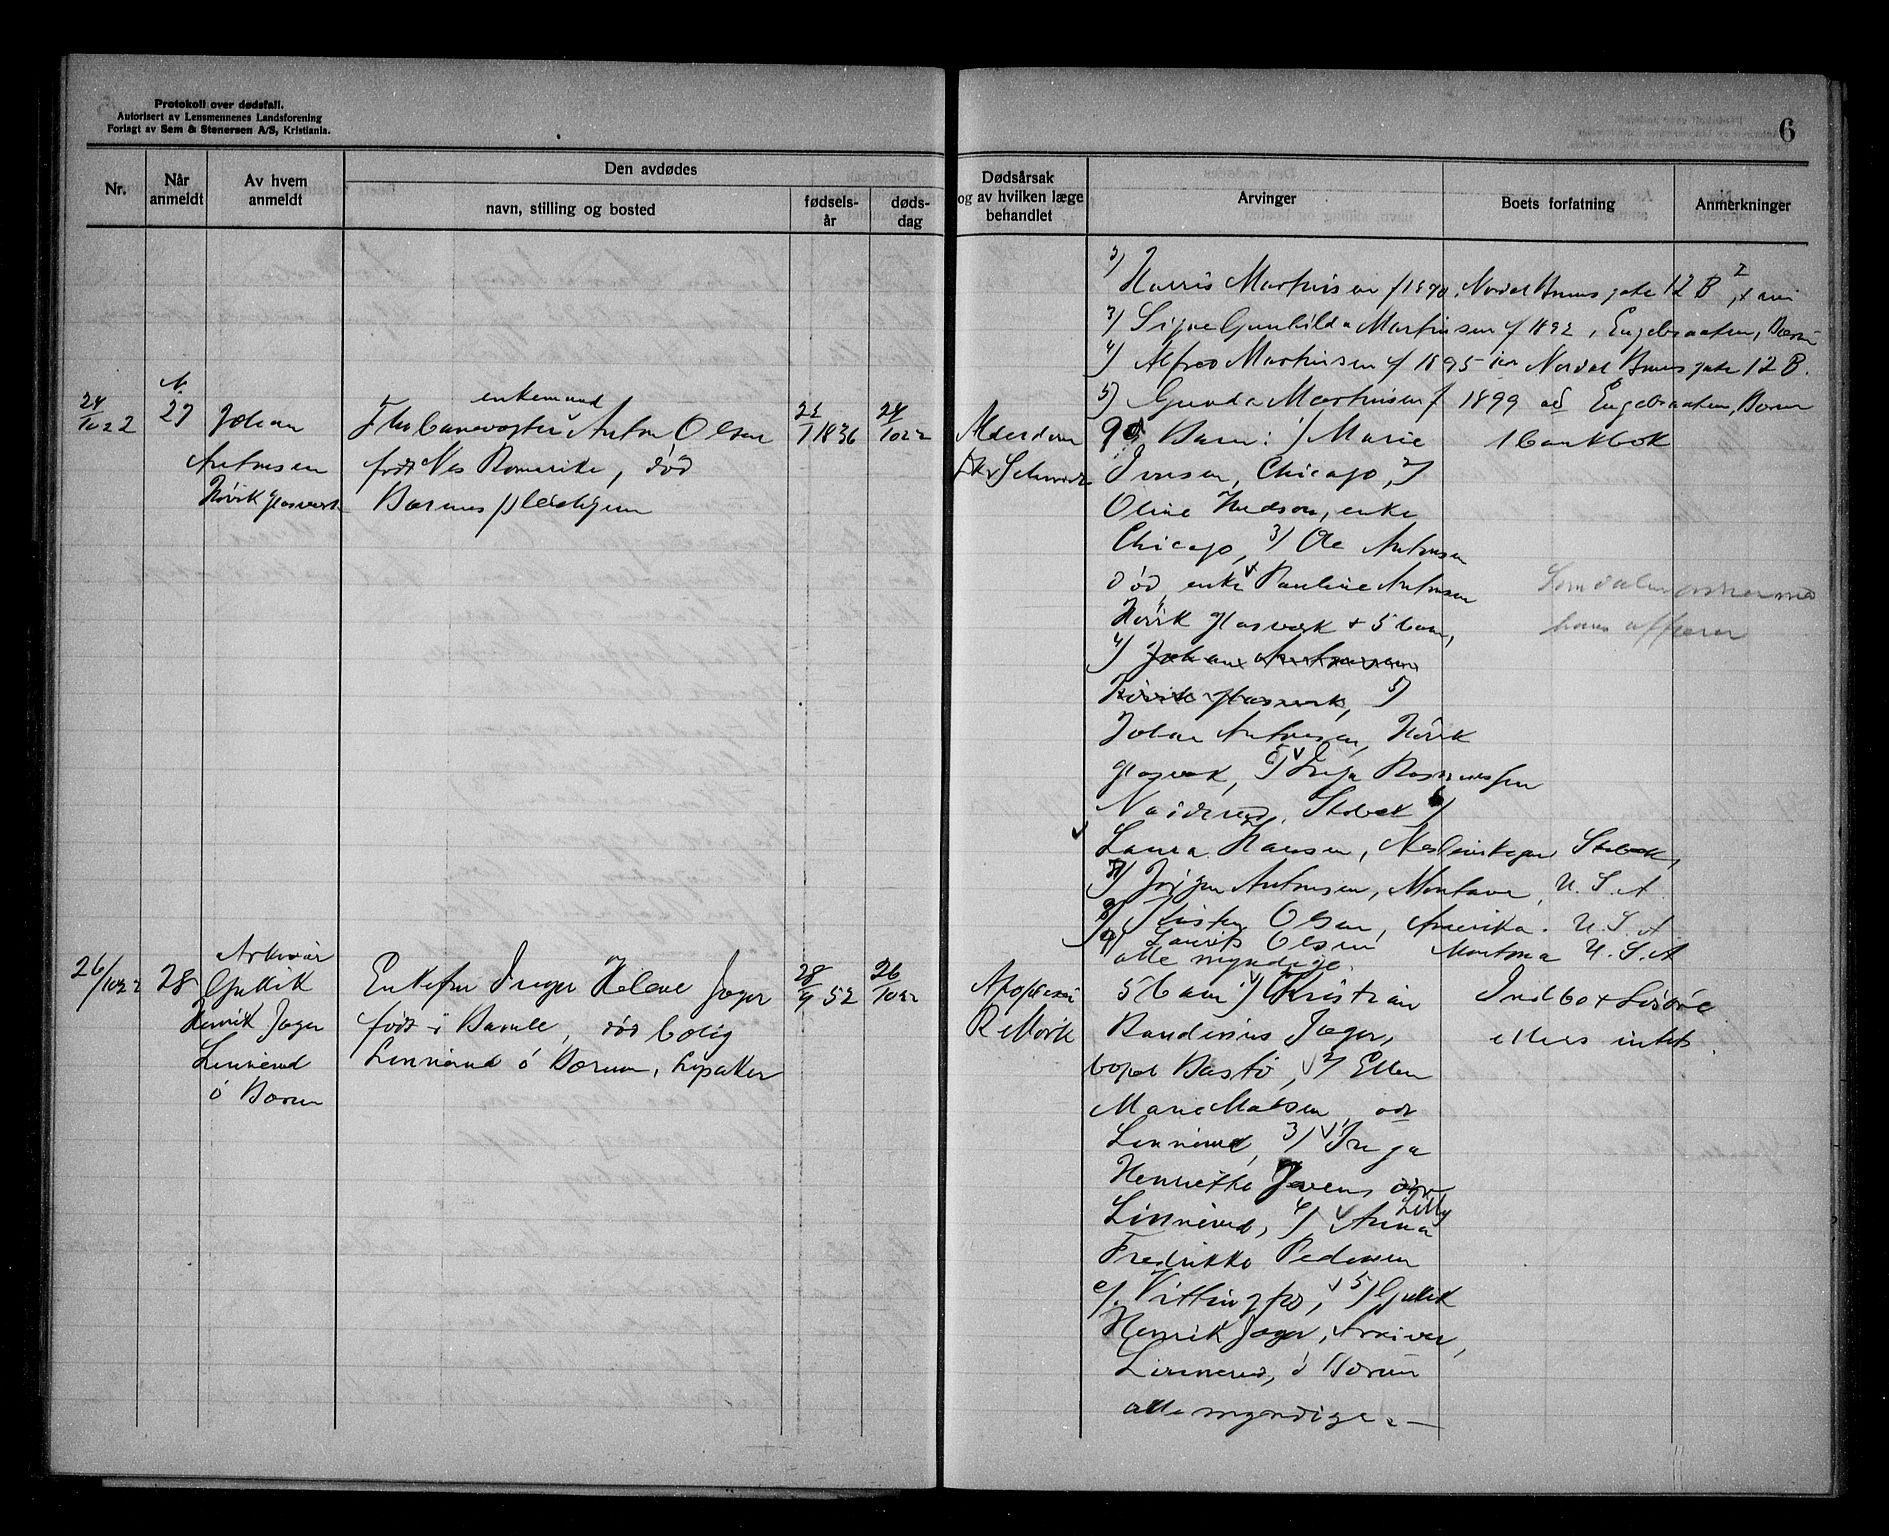 Protokoll over dødsfall.
Autorisert av Lensmennenes Landsforening
Forlagt av Sem & Stenersen A/S, Kristiania.
6
Nr.
Når anmeldt
Av hvem anmeldt
Den avdødes
navn, stilling og bosted
fødsels-år
døds-dag
Dødsårsak og av hvilken læge behandlet
Arvinger
Boets forfatning
Anmerkninger
Martinsen f 1890, Nordal Bruns gate 12 B
3) Signe Gunhilda Martinsen f 1892, Engebraaten, Bærum
4) Alfred Martinsen f 1895 Nordal Bruns gate 12 B.
5) Gunda Martinsen f 1899 Engebraaten, Bærum
24/10 22
27
Johan
Antonsen
Høvik glasverk
enkemand
Anton Olsen
født Nes Romerike, død
Bærums pleiehjem
1836
24/10 22
Alderdom
Dr Schmidt
9 Barn: 1) Marie
Iversen, Chicago, 2)
Oline Hudson, enke
Chicago, 3) Ole Antonsen
død, enke Pauline Antonsen
Høvik glasverk + 5 barn,
4) Johan Antonsen
Høvik glasverk, 5)
Johan Antonsen, Høvik
glasverk, Inga Rasmussen
Stabæk 6)
Laura Hansen, Stabæk,
7) Jørgen Antonsen, Montana, U.S.A
8) Olsen, Amerika. U.S.A
9) Laurits Olsen Montana U.S.A
alle myndige.
1 bankbok
hans affærer
26/10 22
28
Arkivar
Gullik
Henrik Jæger
Linnerud
ö Bærum
Enkefru Inger Helene Jæger
født i Bamle, død bolig
Linnerud ö Bærum, Lysaker
28/4 52
26/10 22
Apopleksi
R Mørk
5 barn 1) Kristian
Baudinius Jæger,
bopel Bastö, 2) Ellen
Marie Madsen
Linnerud, 3) Inga
Henrikke Jevens
Linnerud, 4) Anna Lilly
Fredrikke Pedersen
Vittingfos, 5) Gullik
Henrik Jæger, Arkivar,
Linnerud, ö Bærum
alle myndige.
Indbo + Lösöre
ellers intet.